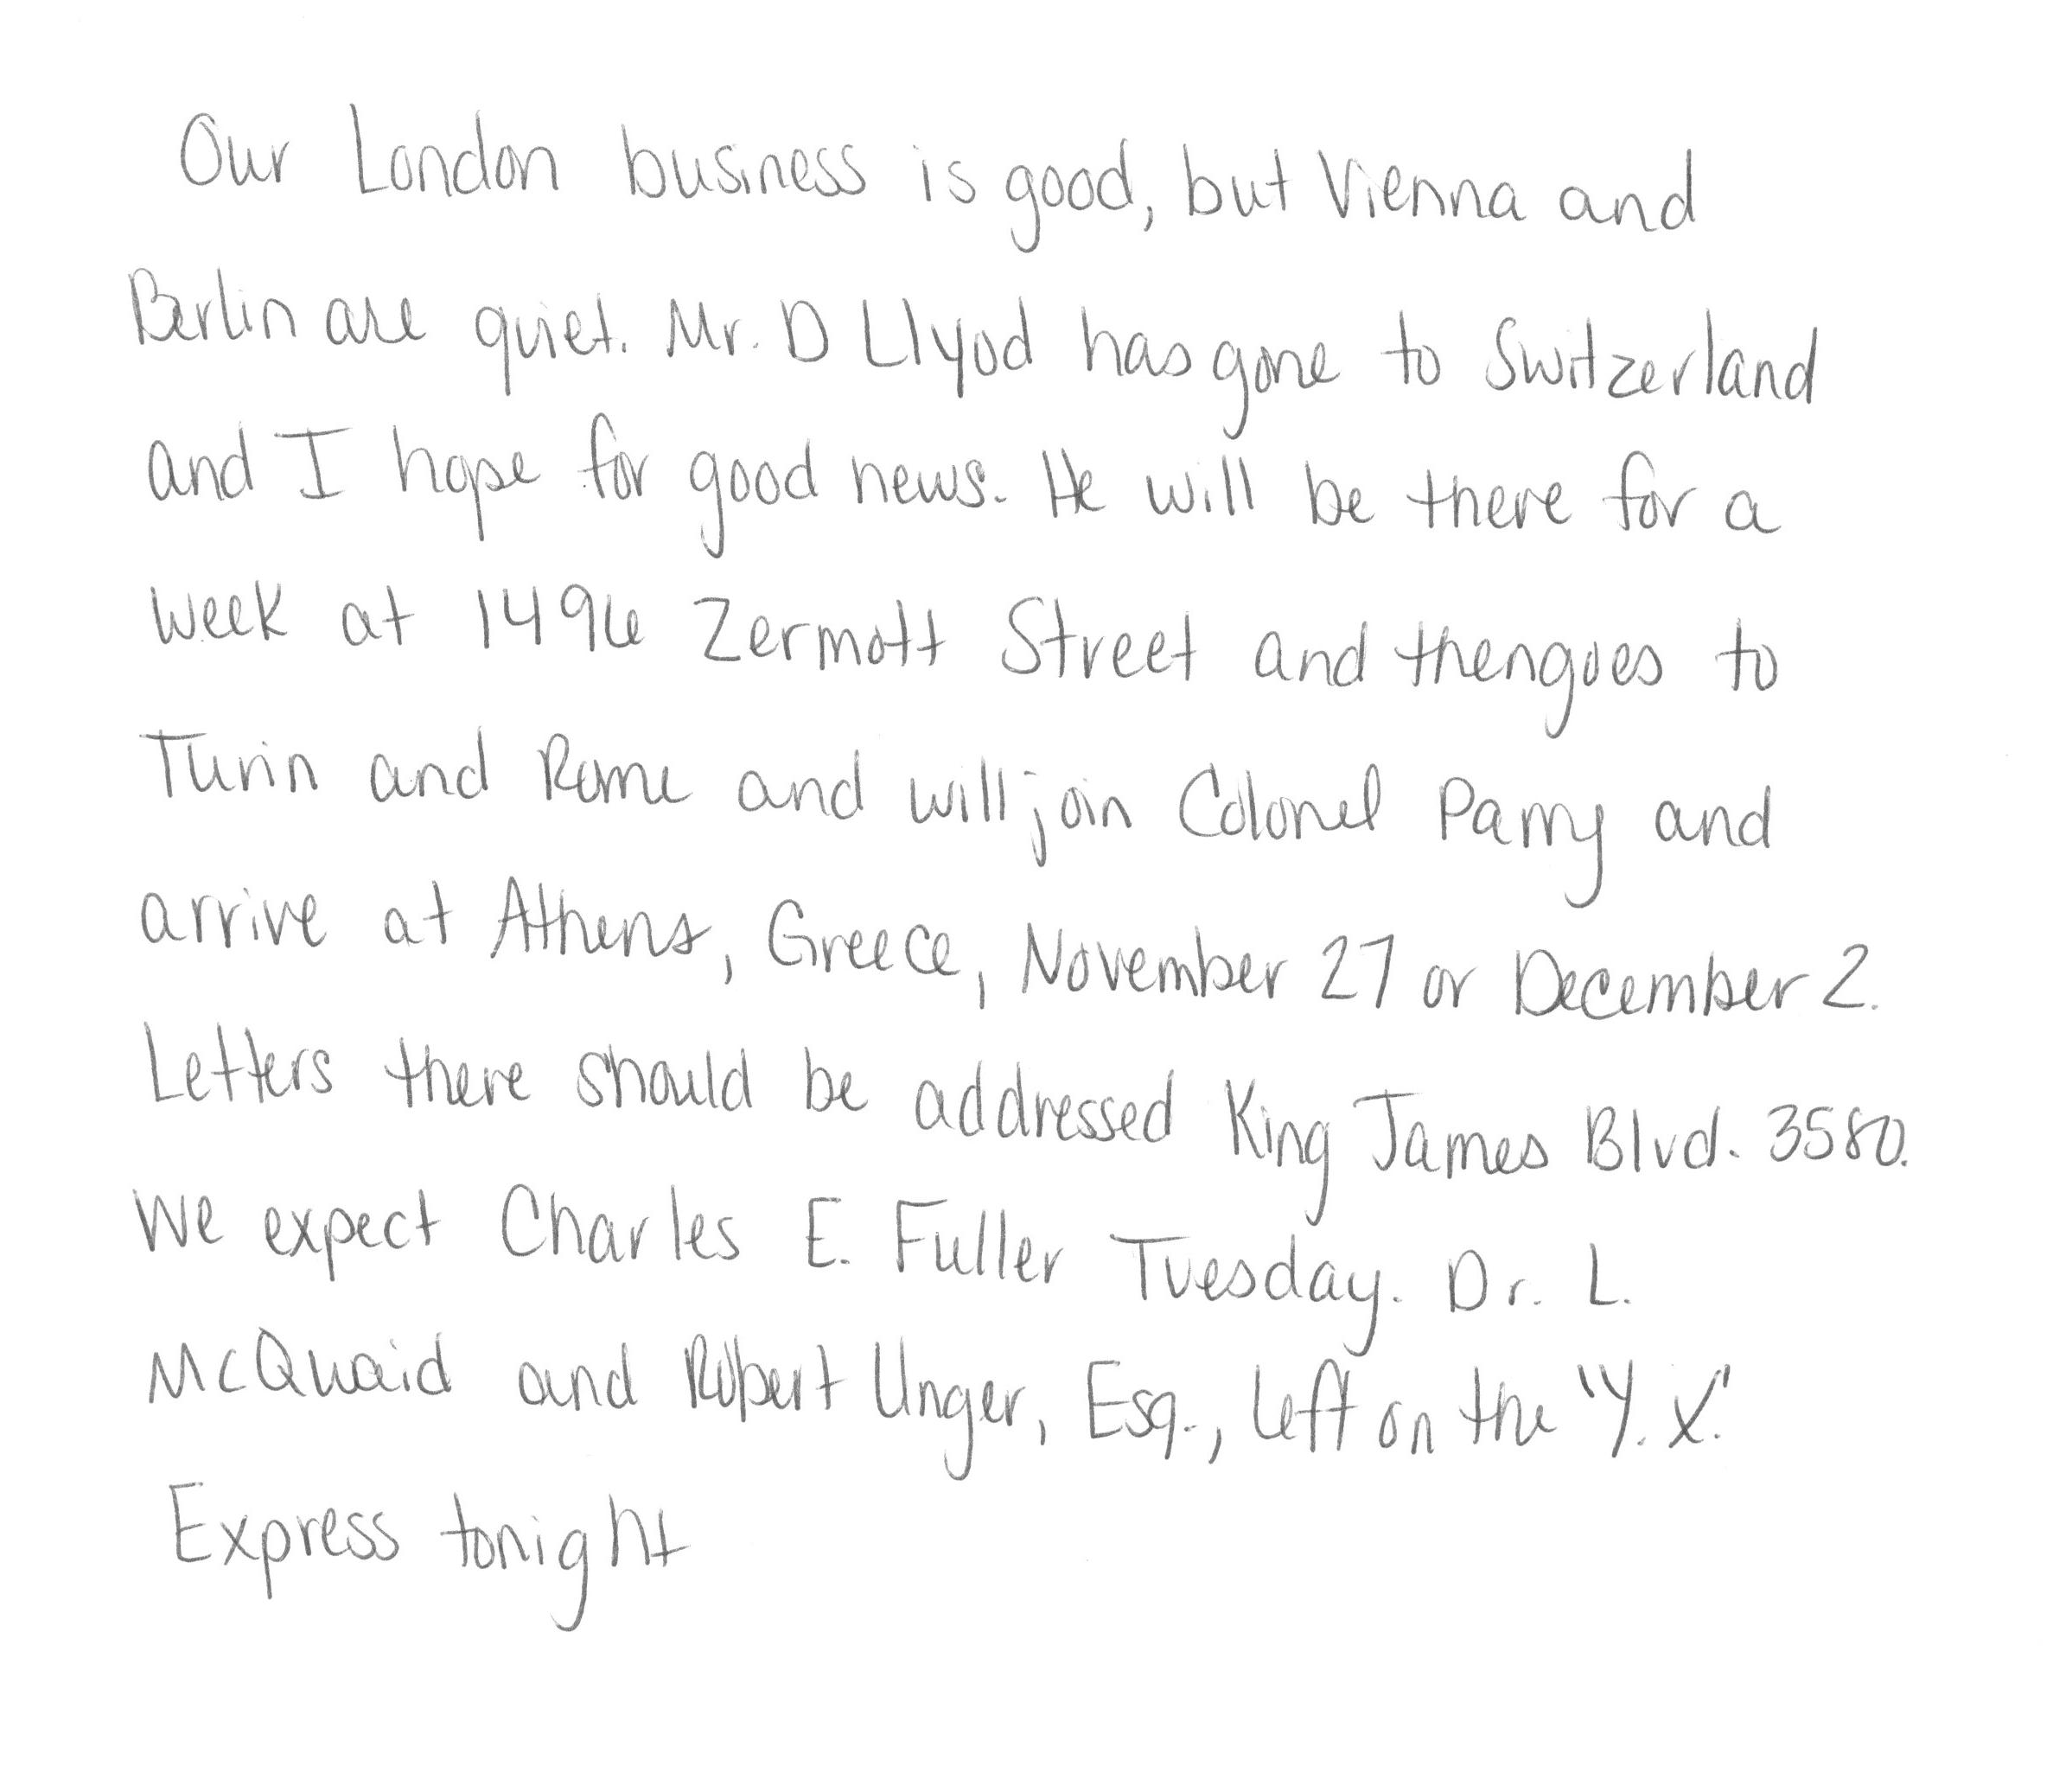 Our London business is good, but Vienna and
Berlin are quiet. Mr. D Llyod has gone to Switzerland
and I hope for good news. He will be there for a
week at 1496 Zermott Street and then goes to
Turin and Rome and will join Colonel Parry and
arrive at Athens, Greece, November 27 or December 2.
Letters there should be addressed King James Blvd. 3580.
We expect Charles E. Fuller Tuesday. Dr. L.
McQuaid and Robert Unger, Esq., left on the "Y.X."
Express tonight